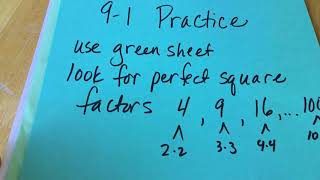 9-1 Practice
use green sheet
look for perfect square
factors 4, 9, 16,...100
2·2 3·3 4·4 10